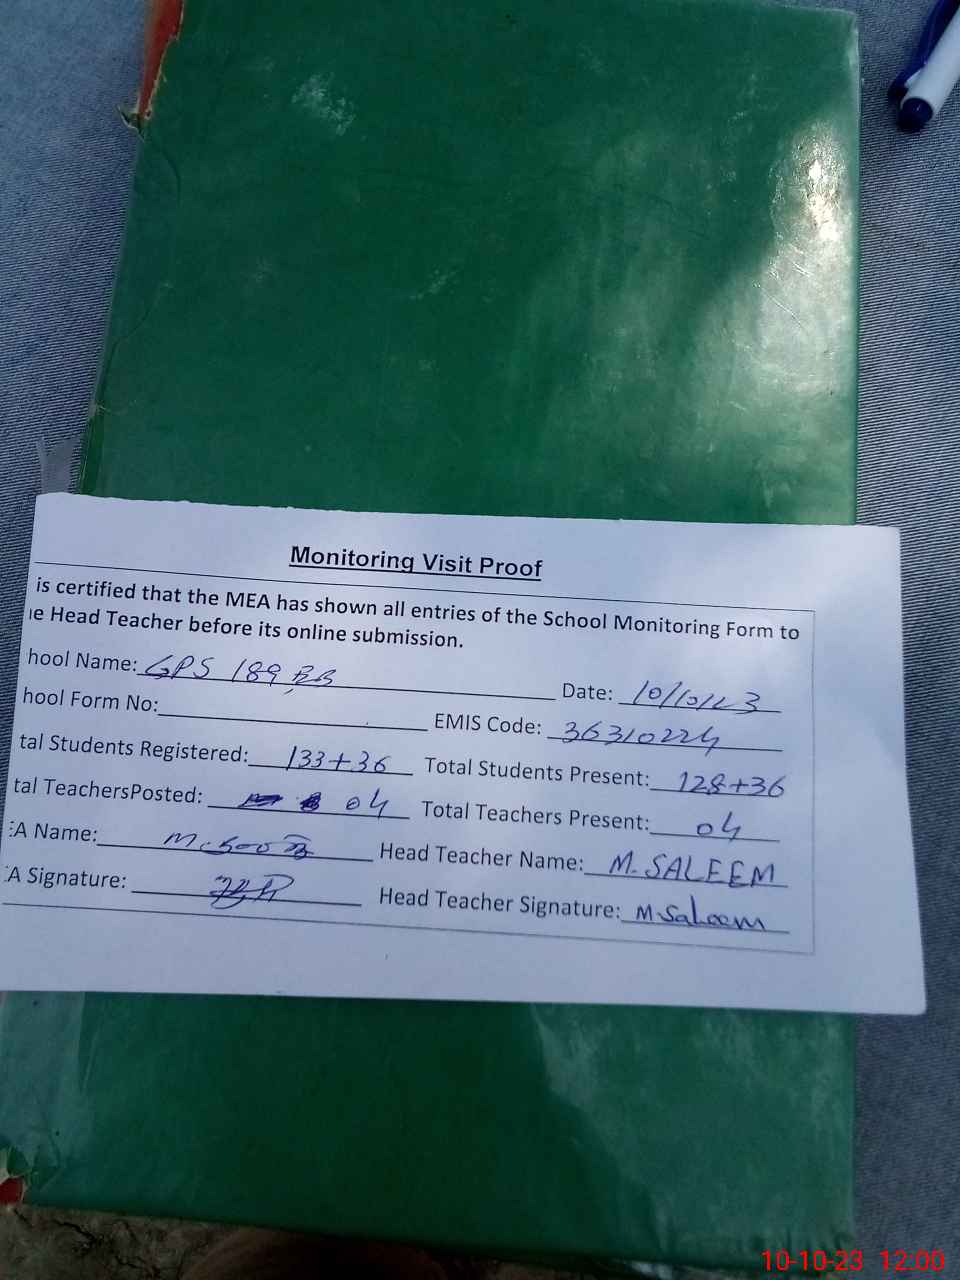 Monitoring Visit Proof
is certified that the MEA has shown all entries of the School Monitoring Form to
e Head Teacher before its online submission.
hool Name: GPS 189
Date: 10/10/23
hool Form No:
EMIS Code: 36310224
tal Students Registered: 133+36 Total Students Present: 128+36
tal TeachersPosted: 04 Total Teachers Present: 04
EA Name: M. Head Teacher Name: M. SALEEM
EA Signature: Head Teacher Signature: M Saleem
10-10-23 12:00